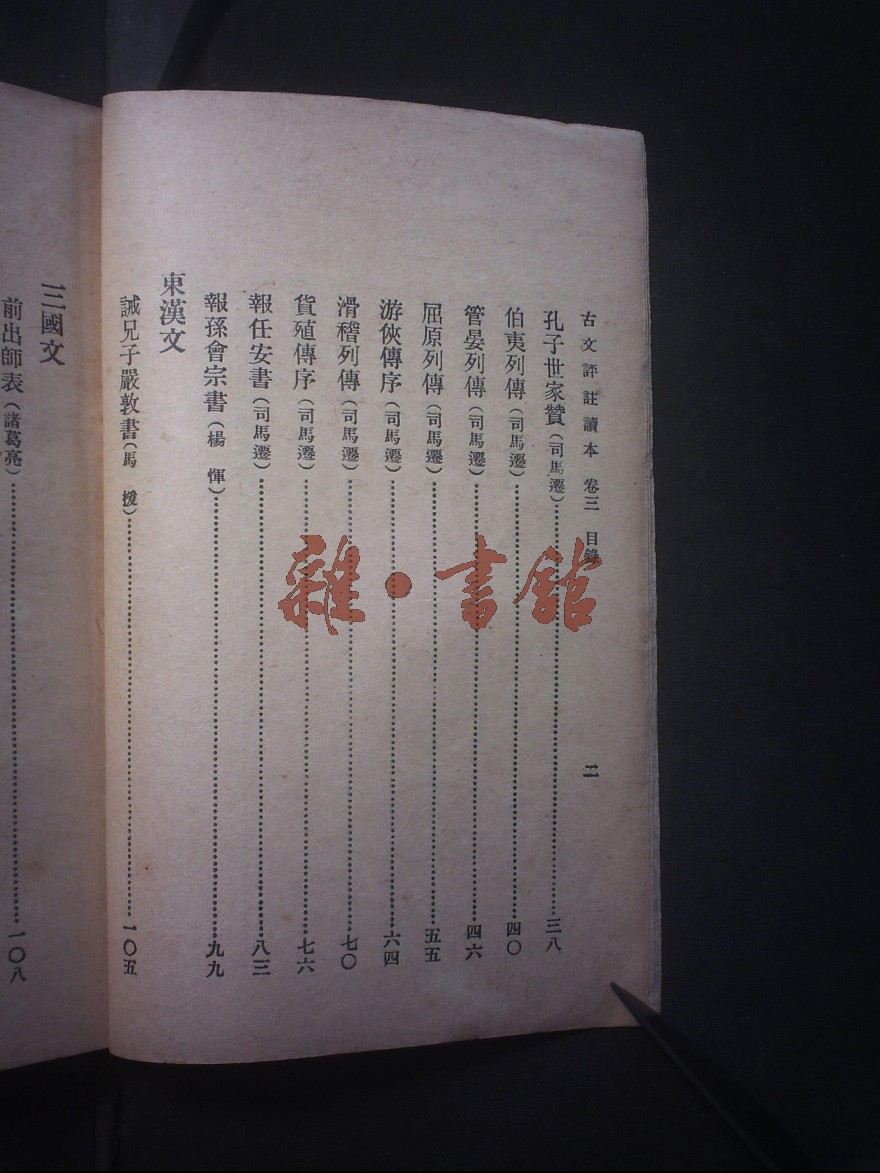 古文評註讀本 卷三 目錄 二
孔子世家贊(司馬遷)三八
伯夷列傳(司馬遷)四〇
管晏列傳(司馬遷)四六
屈原列傳(司馬遷)五五
游俠傳序(司馬遷)六四
滑稽列傳(司馬遷)七〇
貨殖傳序(司馬遷)七六
報任安書(司馬遷)八三
報孫會宗書(楊 惲)九九
東漢文
誡兄子嚴敦書(馬 援)一〇五
三國文
前出師表(諸葛亮)一〇八
雜·書館